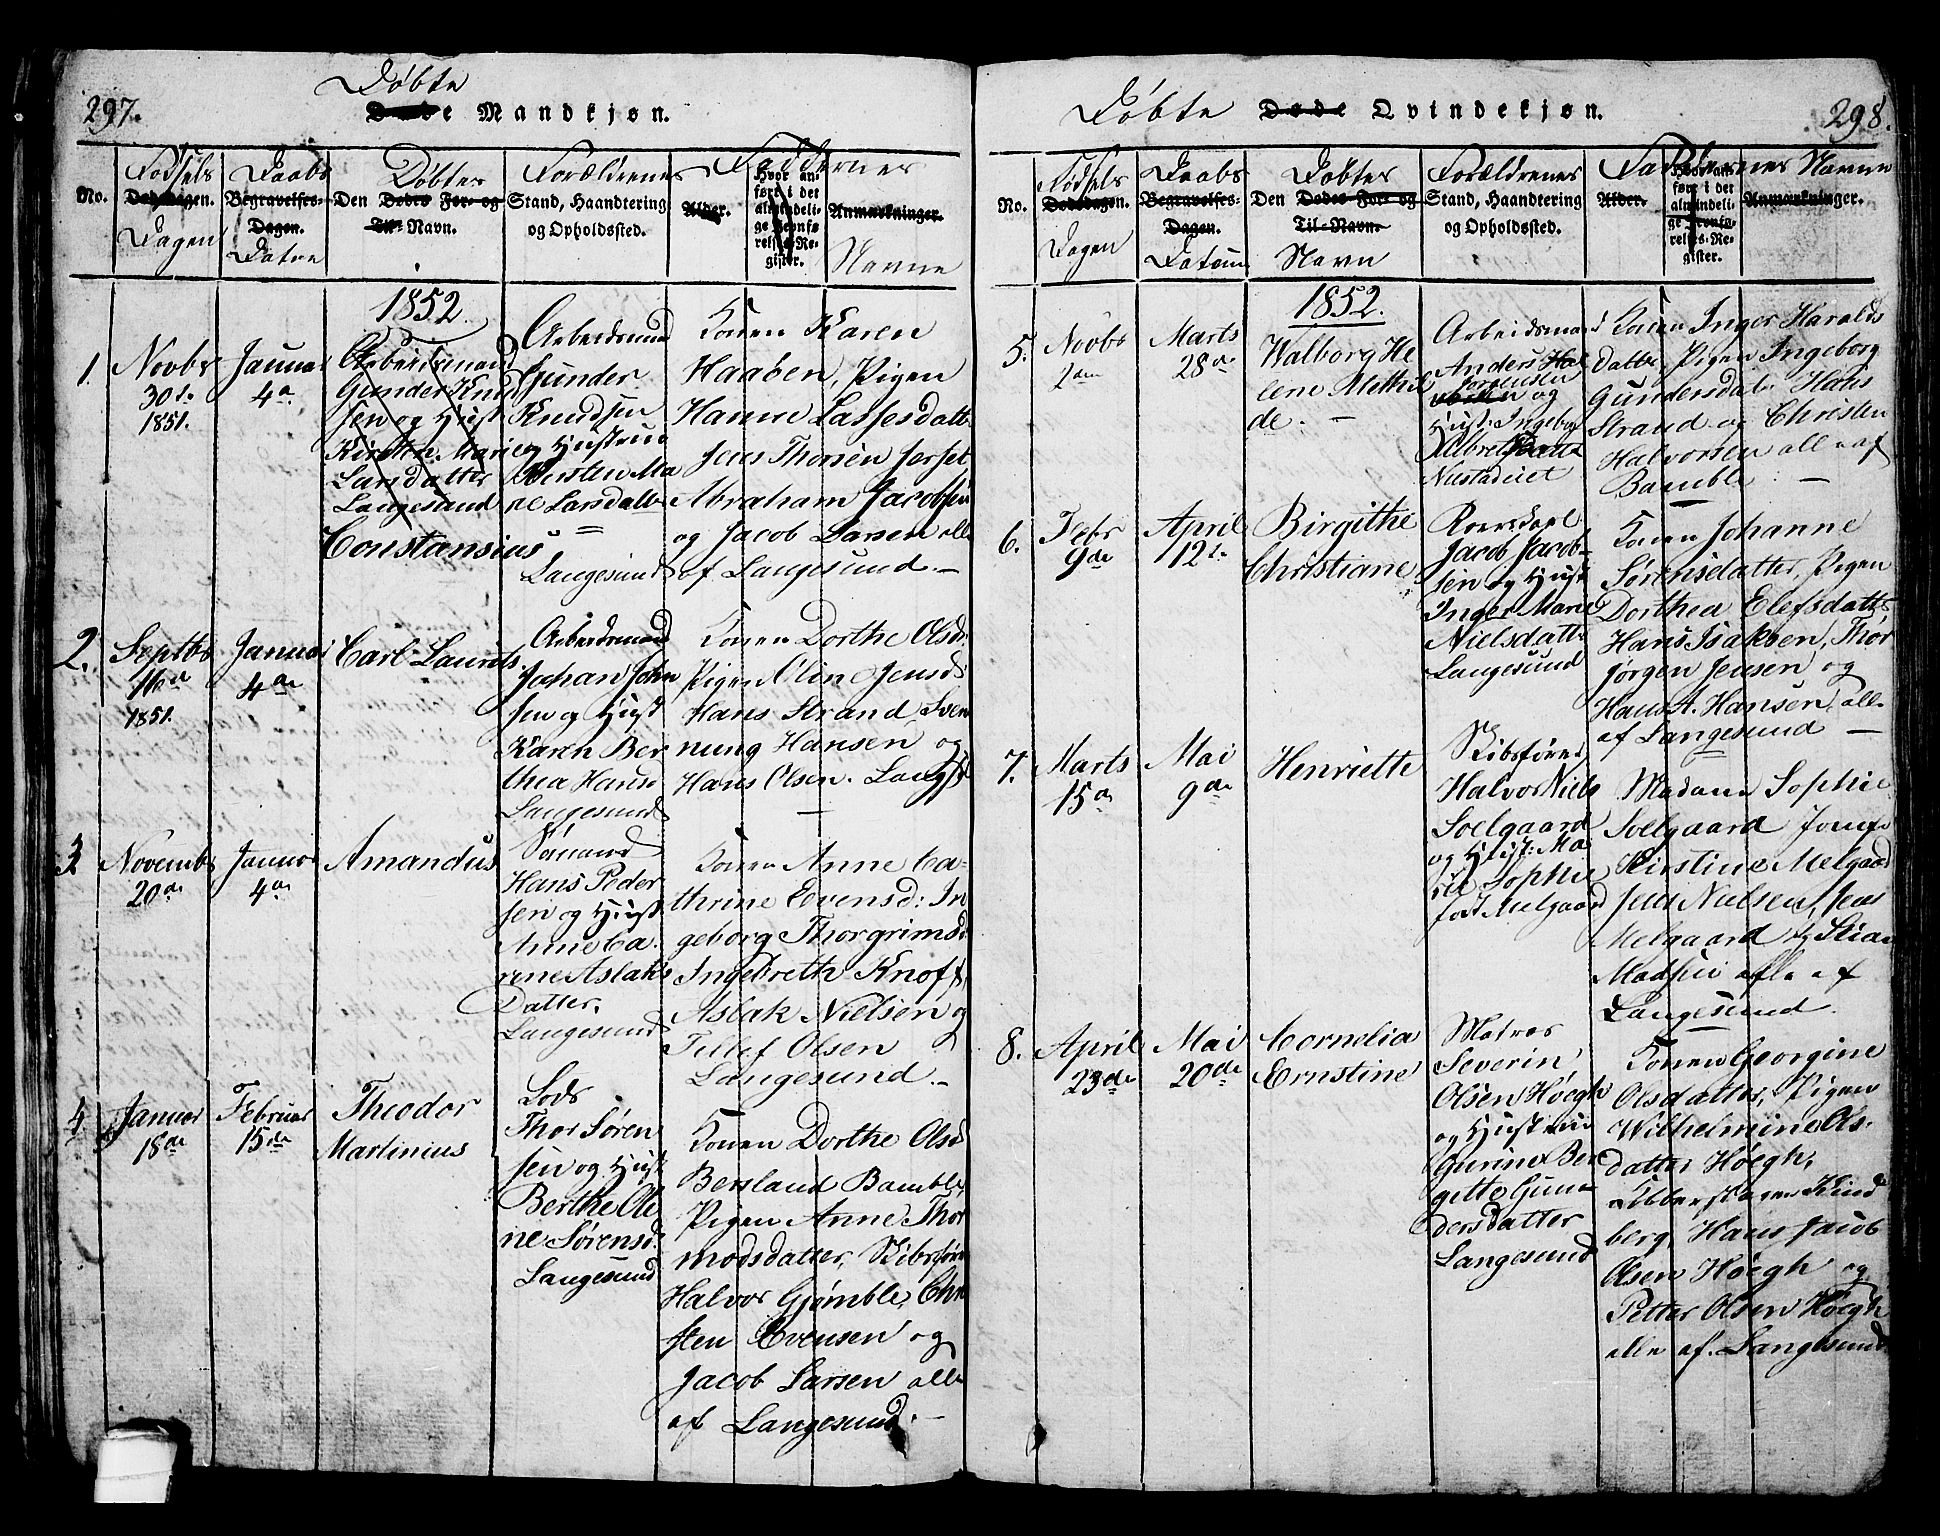 297.
Döbte
Døde Mandkjøn.
No.
Födsels
Dødsdagen.
Dagen
Daabs
Begravelses-
Dagen.
Datoe
Döbtes
Den Dødes For- og
Til-Navn.
Forældrenes
Stand, Haandtering
og Opholdssted.
Faddernes
Alder.
Hvor an-
ført i det
almindeli-
ge Jevnfø-
relses-Re-
gister.
Anmærkninger.
Navne
1852
1.
Novbr
30te
1851.
Januar
4de
Arbeidsmand
Gunder Knud
sen og Hust
Kirsten Marie
Larsdatter
Langesund
Constansius
Arbeidsmand
Gunder
Knudsen
og Hustrue
Kirsten Ma
rie Larsdatter
Langesund
Konen Karen
Haaben, Pigen
Hanne Lassesdatt
Jens Thorsen
Abraham Jacobsen
og Jacob Larsen alle
af Langesund.
2.
Septbr
16de
1851.
Januar
4de
Carl Laurits
Arbeidsmand
Johan John
sen og Hust
Karen Ber
thea Hanse
Langesund
Konen Dorthe Olsd:
Pigen Oline Jensd
Hans Strand, Sven
nung Hansen og
Hans Olsen. Langsd
3
Novembr
20de
Januar
4de
Amandus
Sömand
Hans Peder
sen og Hust
Anne Ca-
rene Aslaks
Datter.
Langesund
Konen Anne Ca-
thrine Evensd: In
geborg Thorgrimsd
Ingebreth Knoff,
Aslak Nielsen og
Tellef Olsen
Langesund.
4.
Januar
18de
Februar
15de
Theodor
Martinius
Lods
Thor Sören
sen og Hust
Berthe Ole
ne Sörensd.
Langesund
Konen Dorthe Olsd
Bersland Bamble,
Pigen Anne Thor
modsdatter, Skibsföre
Halvor Gjömble, Chri
sten Evensen og
Jacob Larsen alle
af Langesund.
298.
Döbte Døde Qvindekjøn.
No.
Födsels
Dødsdagen.
Dagen
Daabs
Begravelses-
Dagen.
Datum
Döbtes
Den Dødes For- og
Til-Navn.
Navn
Forældrenes
Stand, Haandtering
og Opholdssted.
Faddernes Navne
Alder.
Hvor an-
ført i det
almindeli-
ge Jevnfø-
relses-Re-
gister.
Anmærkninger.
1852.
5.
Novbr
2den
Marts
28de
Walborg He
lene Methil
de.
Arbeidsmand
Anders
Jörgensen
og
Hust: Ingeborg
Albretsdatter
Konen Inger Haralds
datter, Pigen Ingeborg
Gundersdatr Hans
Strand og Christen
Halvorsen alle af
Bamble
6.
Febr
9de
April
12te
Birgithe
Christiane
Jacob Jacob-
sen og Hust
Inger Marie
Nielsdatter
Langesund
Konen Johanne
Sörensdatter, Pigen
Dorthea Elefsdatter
Hans Isaksen, Thor
Jørgen Jensen og
Hans A. Hansen, alle
af Langesund
7.
Marts
15de
Mai
9de
Henriette
Skibsförer
Halvor Niels
Soelgaard
og Hust: Ma
rie Sophie
födt Melgaard
Madam Sophie
Soelgaard Jomfr
Kirstine Melgaard
Jens Nielsen, Jens
Melgaard og Stian
Madsen alle af
Langesund.
8.
April
23de
Mai
20de
Cornelia
Ernstine
Matros
Severin
Olsen Höegh
og Hustrue
Gurine Ber
gitte Gun
dersdatter
Langesund
Konen Georgine
Olsdatter, Pigen
Wilhelmine Ols-
datter Höegh,
Kobberslager Lind
berg, Hans Jacob
Olsen Höegh og
Petter Olsen Höegh
alle af Langesund